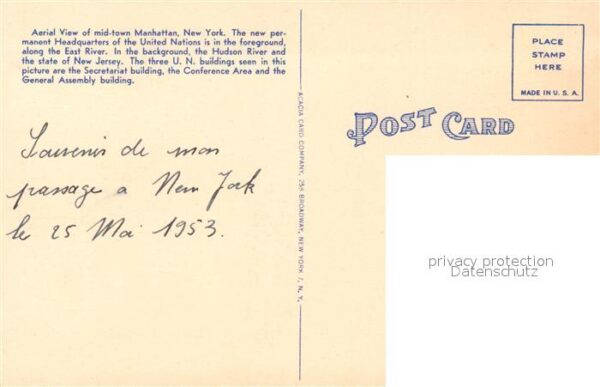 Aerial View of mid-town Manhattan, New York. The new per-
manent Headquarters of the United Nations is in the foreground,
along the East River. In the background, the Hudson River and
the state of New Jersey. The three U. N. buildings seen in this
picture are the Secretariat building, the Conference Area and the
General Assembly building.
Souvenir de mon
passage a New York
le 25 Mai 1953.
ACACIA CARD COMPANY, 258 BROADWAY, NEW YORK 7, N. Y.
POST CARD
PLACE
STAMP
HERE
MADE IN U. S. A.
privacy protection
Datenschutz